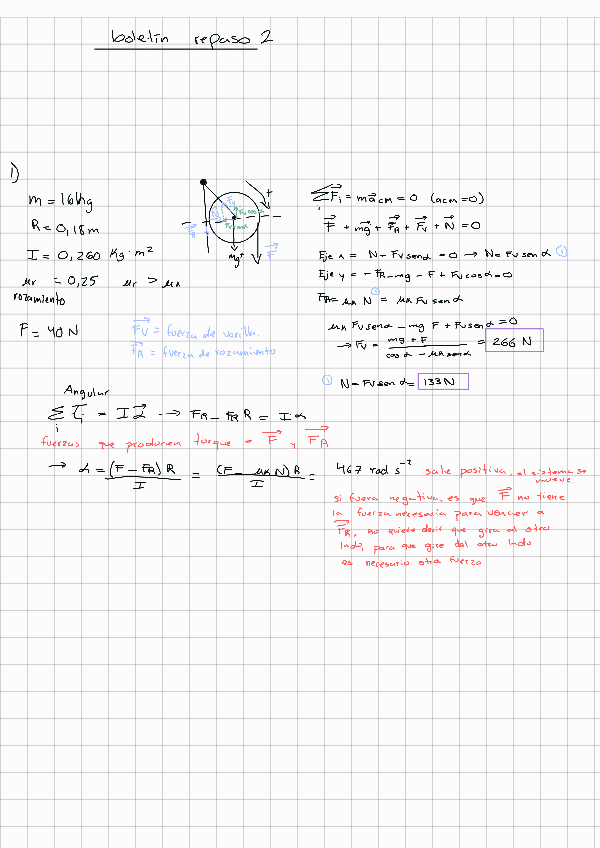 boletín repaso 2
1)
m = 16 kg
R = 0,18 m
I = 0,260 kg·m²
μr = 0,25 μr > μk
rozamiento
F = 40 N
Fv = fuerza de varilla.
FR = fuerza de rozamiento
mg
F
+
ΣFi = m acm = 0 (acm = 0)
i
F + mg + FR + Fv + N = 0
Eje x = N - Fv senα = 0 → N = Fv senα ①
Eje y = - FR - mg - F + Fv cosα = 0
FR = μk N = μk Fv senα
μk Fv senα - mg F + Fv senα = 0
→ Fv = mg + F / cosα - μk senα = 266 N
① N - Fv senα = 133 N
Angular
Στi = Iα → FR - FR R = Iα
i
fuerzas que producen torque = F y FR
→ α = (F - FR) R / I = (F - μk N) R / I = 467 rad s⁻² sale positiva, el sistema se
mueve
si fuera negativa, es que F no tiene
la fuerza necesaria para vencer a
FR, no quiere decir que gira al otro
lado, para que gire del otro lado
es necesario otra fuerza